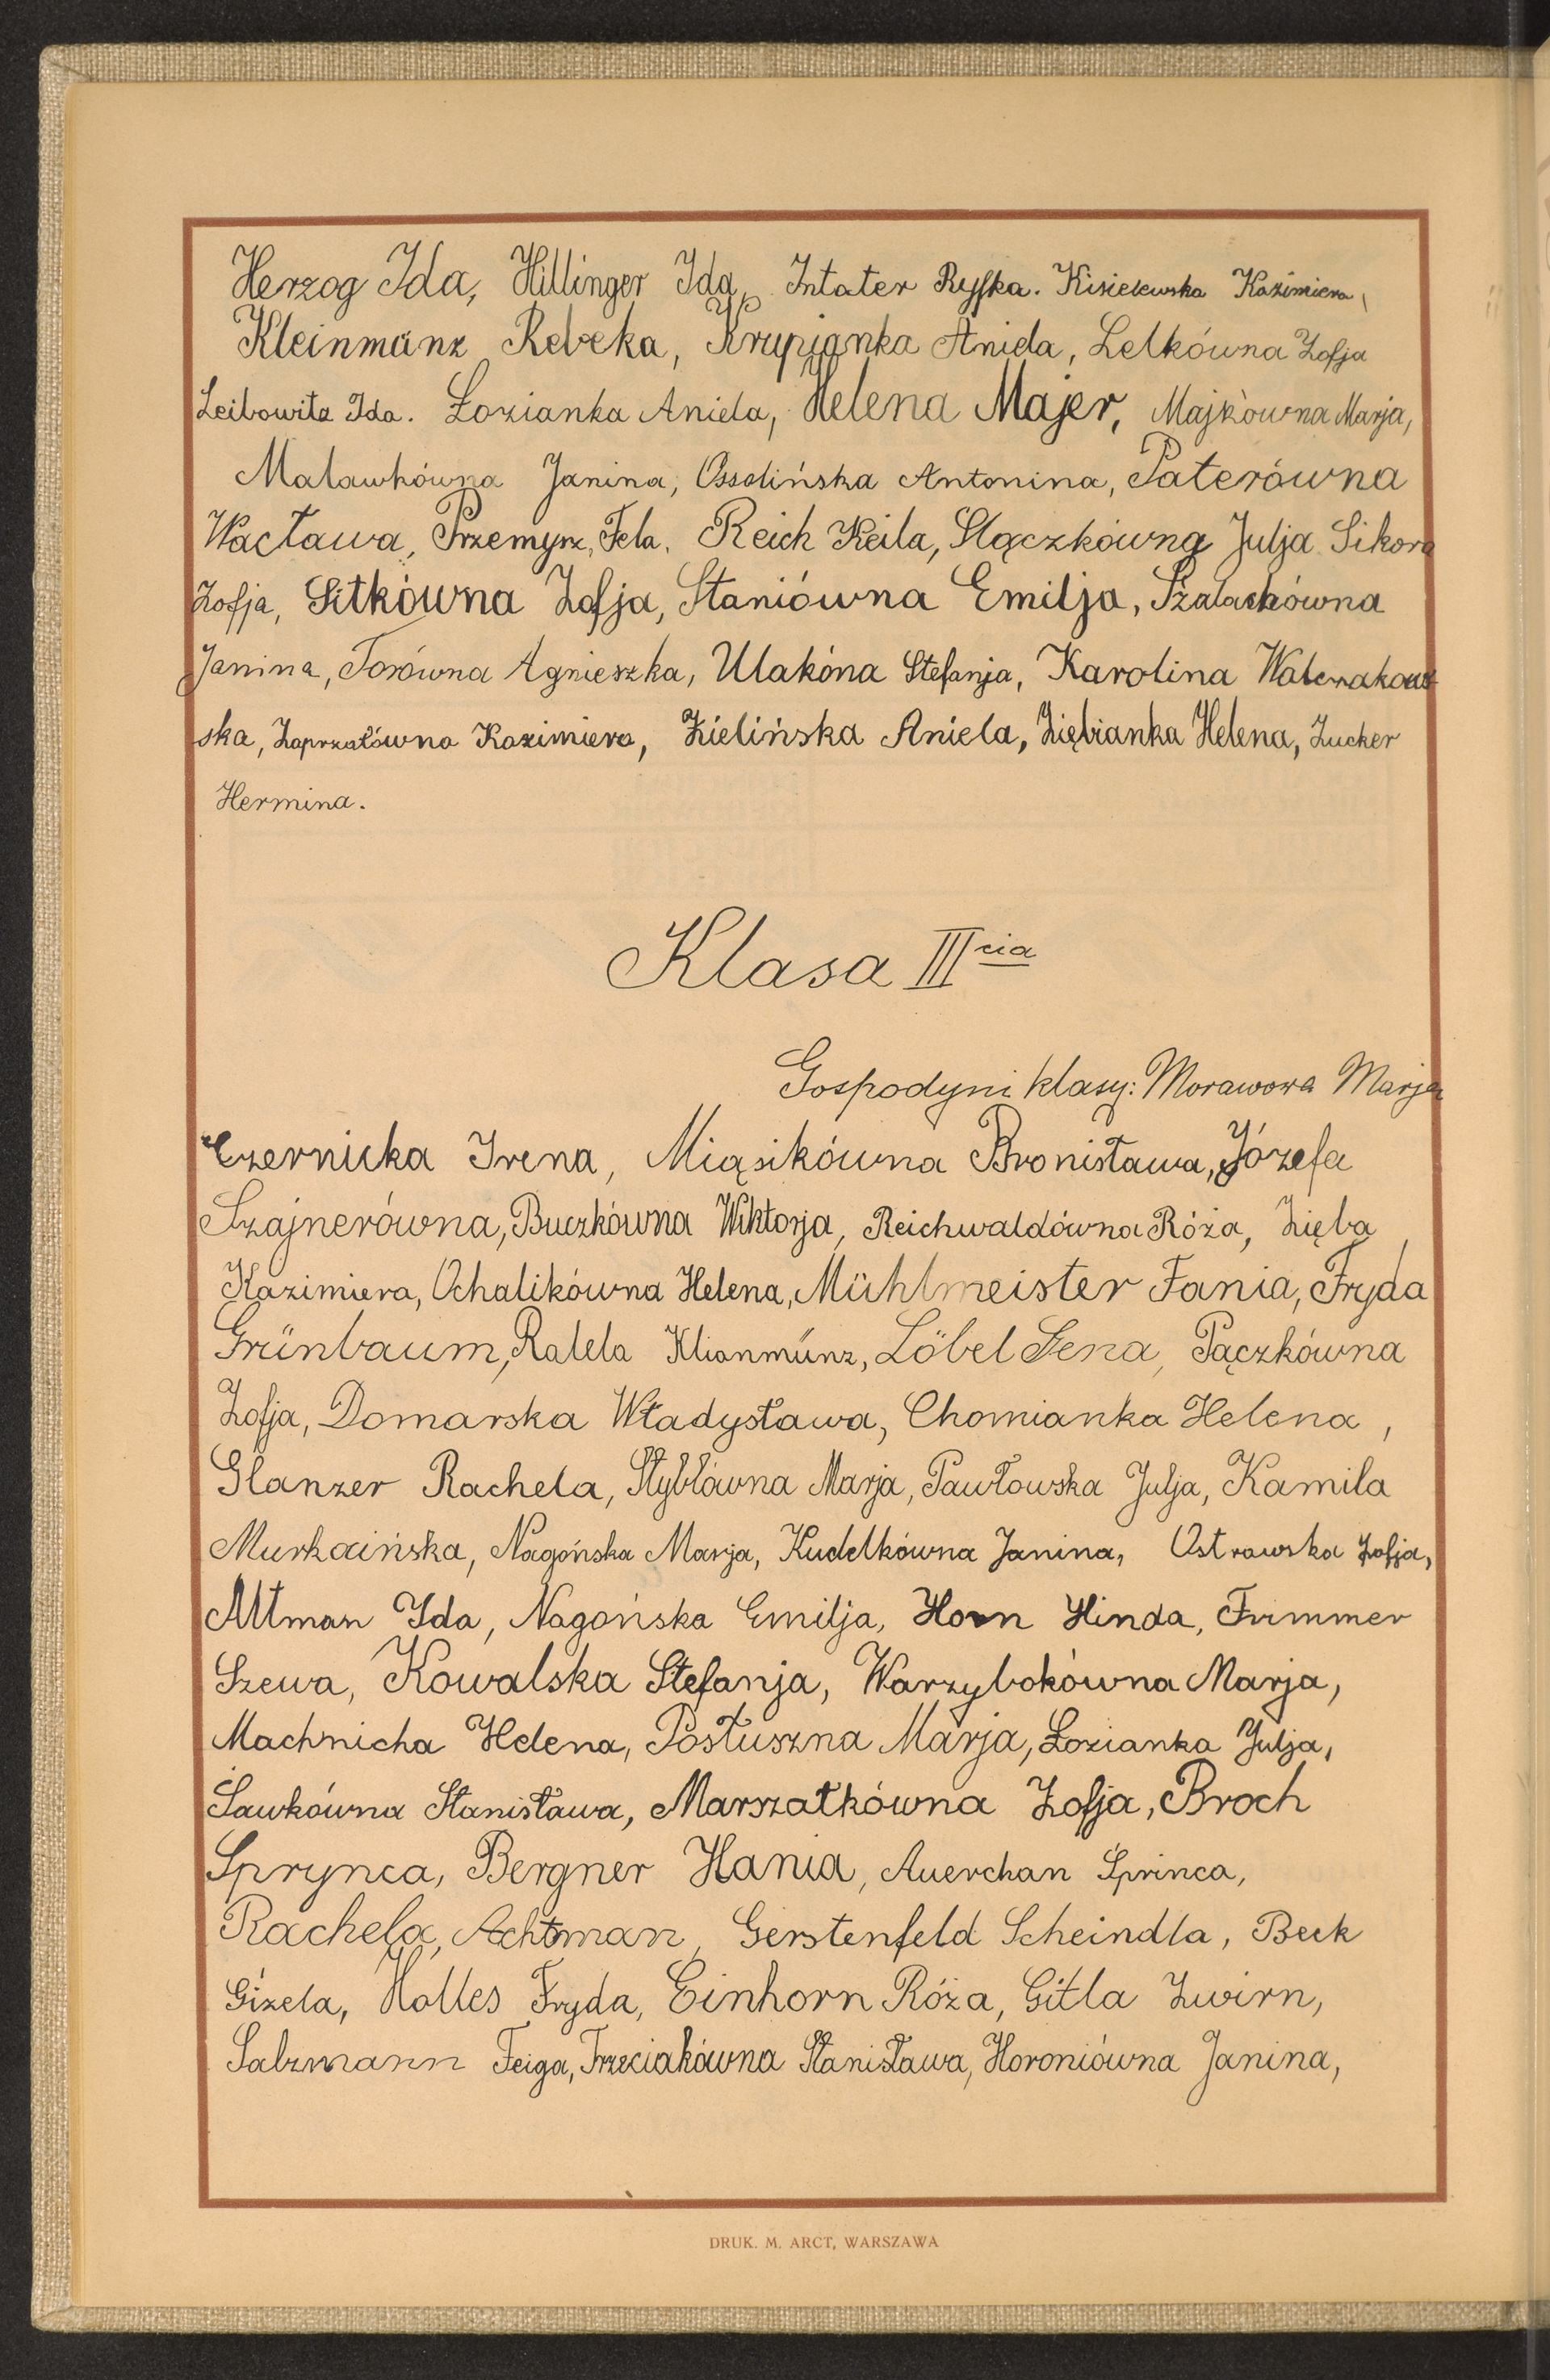 Herzog Ida, Hillinger Ida, Intater Ryfka. Kisielewska Kazimiera,
Kleinmünz Rebeka, Krupianka Aniela, Lelkówna Zofja
Leibowitz Ida. Łozianka Aniela, Helena Majer, Majkówna Marja,
Maławkówna Janina, Ossolińska Antonina, Paterówna
Wacława, Przemyrz, Fela, Reich Keila, Slączkówna Julja Sikora
Zofja, Sitkówna Zofja, Staniówna Emilja, Szalachówna
Janina, Torówna Agnieszka, Ulakóna Stefanja, Karolina
ska, Zaprzałówna Kazimiera, Zielińska Aniela, Ziębianka Helena, Zucker
Hermina.
Klasa III cia
Gospodyni klasy: Morawowa Marja
Czernicka Irena, Miąsikówna Bronisława, Józefa
Szajnerówna, Buczkówna Wiktorja, Reichwaldówna Róża, Zięba
Kazimiera, Ochalikówna Helena, Mühlmeister Fania, Fryda
Grünbaum, Ralela Klianmünz, Löbel Lena, Pączkówna
Zofja, Domarska Władysława, Chomianka Helena,
Glanzer Rachela, Stybłówna Marja, Pawłowska Julja, Kamila
Murkaińska, Nagońska Marja, Kudelkówna Janina, Ostrowska Zofja,
Altman Ida, Nagońska Emilja, Horn Hinda, Frimmer
Szewa, Kowalska Stefanja, Warzybokówna Marja,
Machnicha Helena, Posłuszna Marja, Łozianka Julja,
Sawkówna Stanisława, Marszałkówna Zofja, Broch
Sprynca, Bergner Hania, Auerchan Sprinca,
Rachela, Achtman, Gerstenfeld Scheindla, Beck
Gizela, Holles Fryda, Einhorn Róża, Gitla Zwirn,
Salzmann Feiga, Trzeciakówna Stanisława, Horoniówna Janina,
DRUK. M. ARCT, WARSZAWA